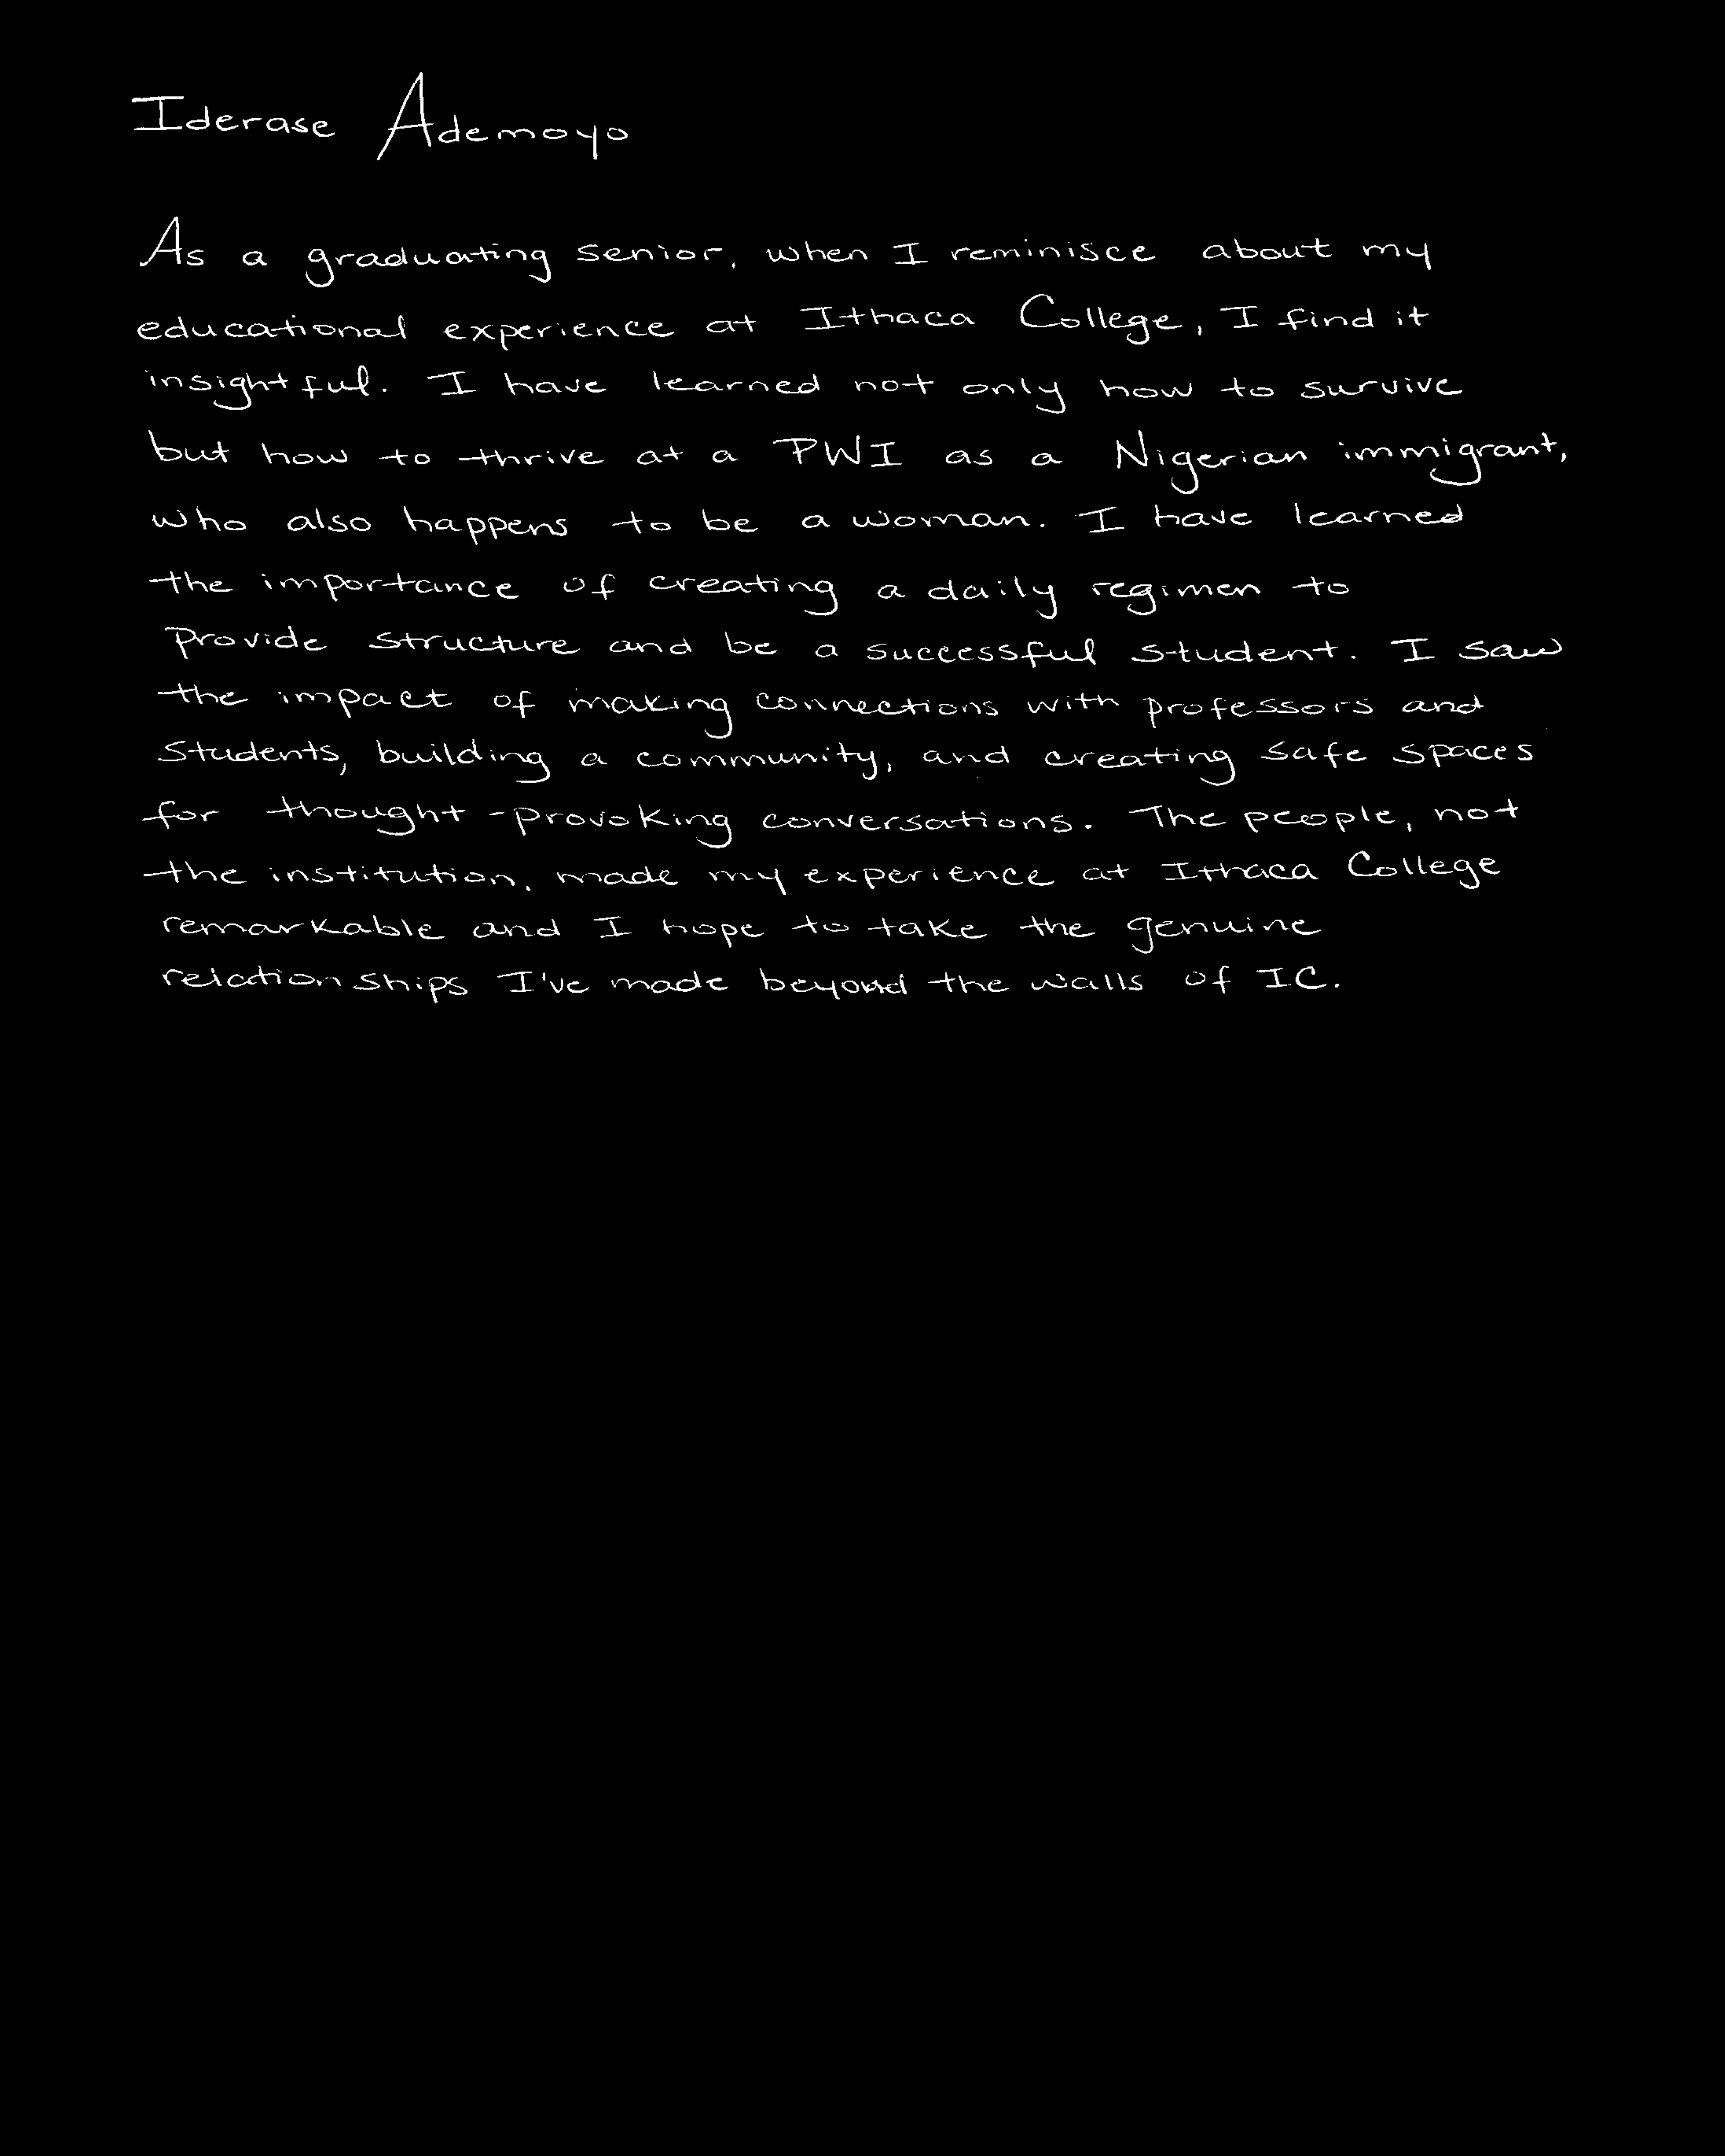 Iderase Ademoyo
As a graduating senior, when I reminisce about my
educational experience at Ithaca College, I find it
insightful. I have learned not only how to survive
but how to thrive at a PWI as a Nigerian immigrant,
who also happens to be a woman. I have learned
the importance of creating a daily regimen to
provide structure and be a successful student. I saw
the impact of making connections with professors and
students, building a community, and creating safe spaces
for thought-provoking conversations. The people, not
the institution, made my experience at Ithaca College
remarkable and I hope to take the genuine
relationships I've made beyond the walls of IC.